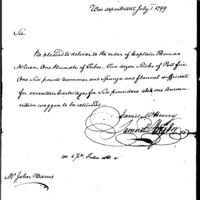 War department July 1799
Sir,
Be pleased to deliver to the order of Captain Thomas
One Bundle of Tubes. Two dozen Sticks of Port fire
One Six pound Hammer and Sponge and flannel sufficient
for seventeen Cartridges for Six pounders also one Ammu-
nition waggon to be returned
James McHenry
Samuel Hodgdon
Mr John Harris